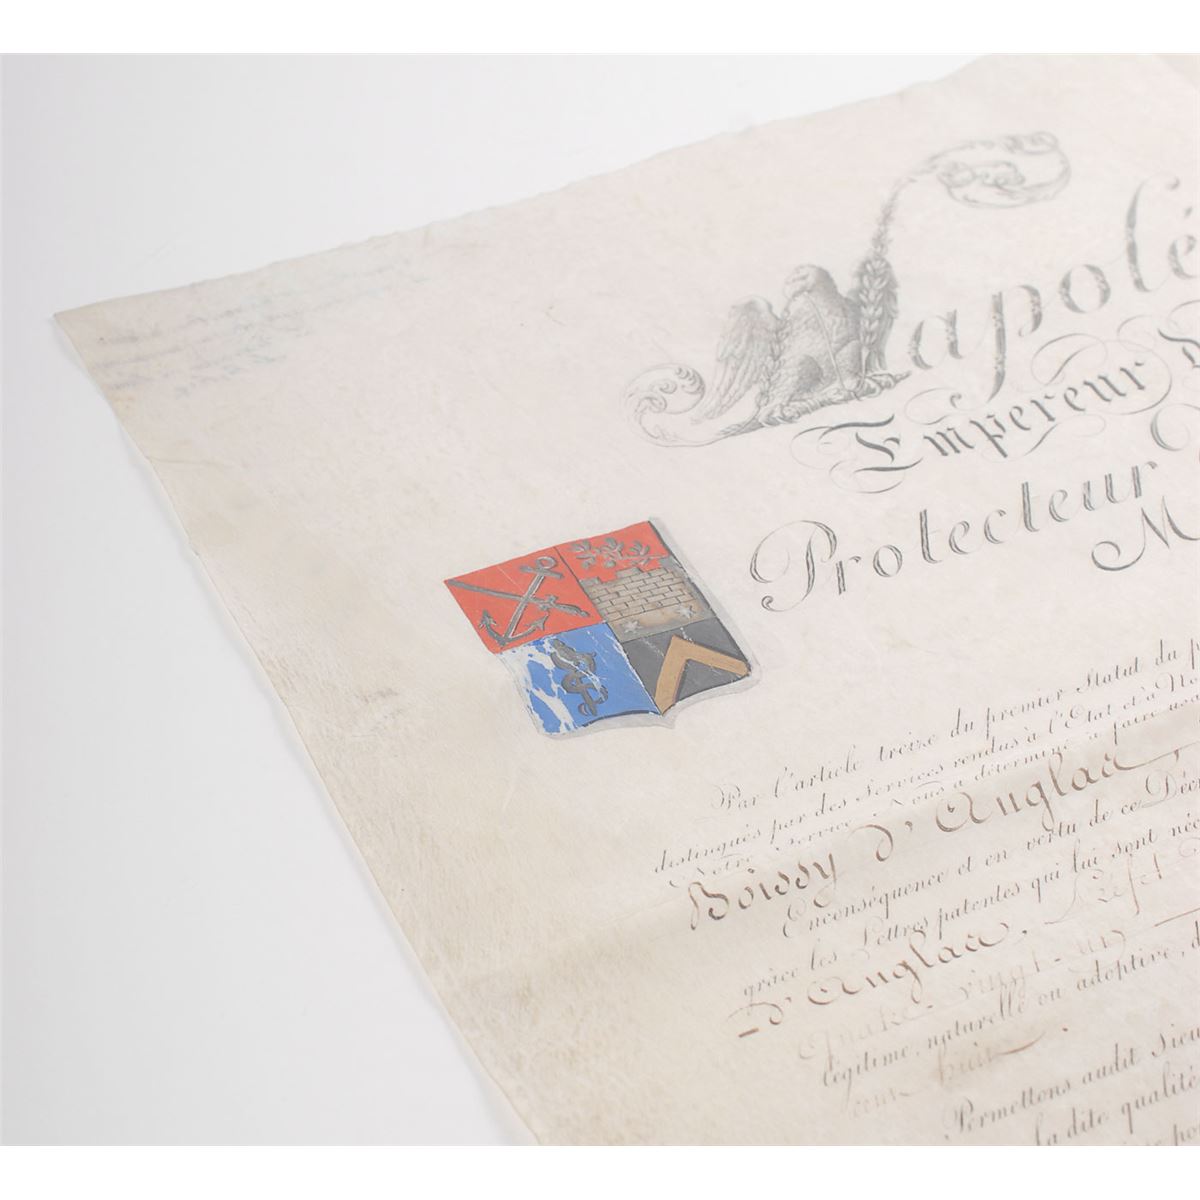 Napolé
Empereur D
Protecteur
M
Par l'article treize du premier Statut du p
distingués par des Services rendus à l'Etat et à No
Notre Service. Nous a déterminé à faire usa
Boissy d'Anglas,
Enconséquence et en vertu de ce Décr
grâce les Lettres patentes qui lui sont néc
d'Anglas, Sept
quatre-vingt-un
légitime, naturelle ou adoptive, d
cent huit
Permettons audit Sieu
la dite qualité